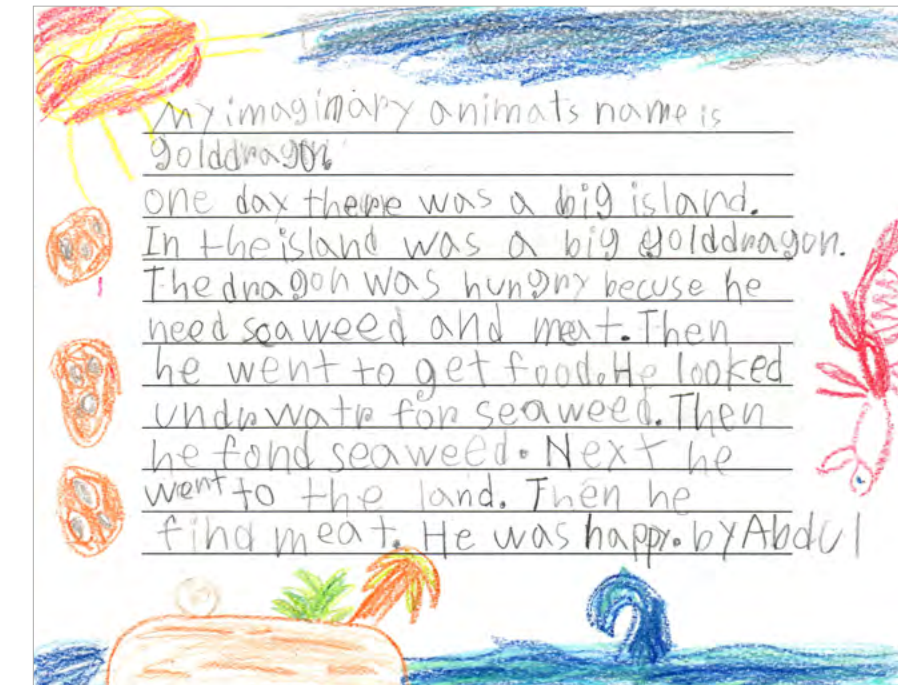 My imagimary animals name is
golddragon.
one day there was a big island.
In the island was a big golddragon.
The dragon was hungry becuse he
need seaweed and meat. Then
he went to get food. He looked
undr watr for seaweed. Then
he fond seaweed. Next he
went to the land. Then he
find meat. He was happy. by Abdul